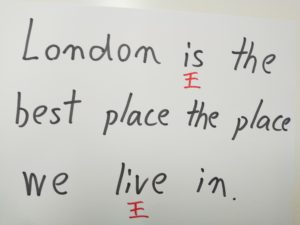 London is the
王
best place the place
we live in.
王